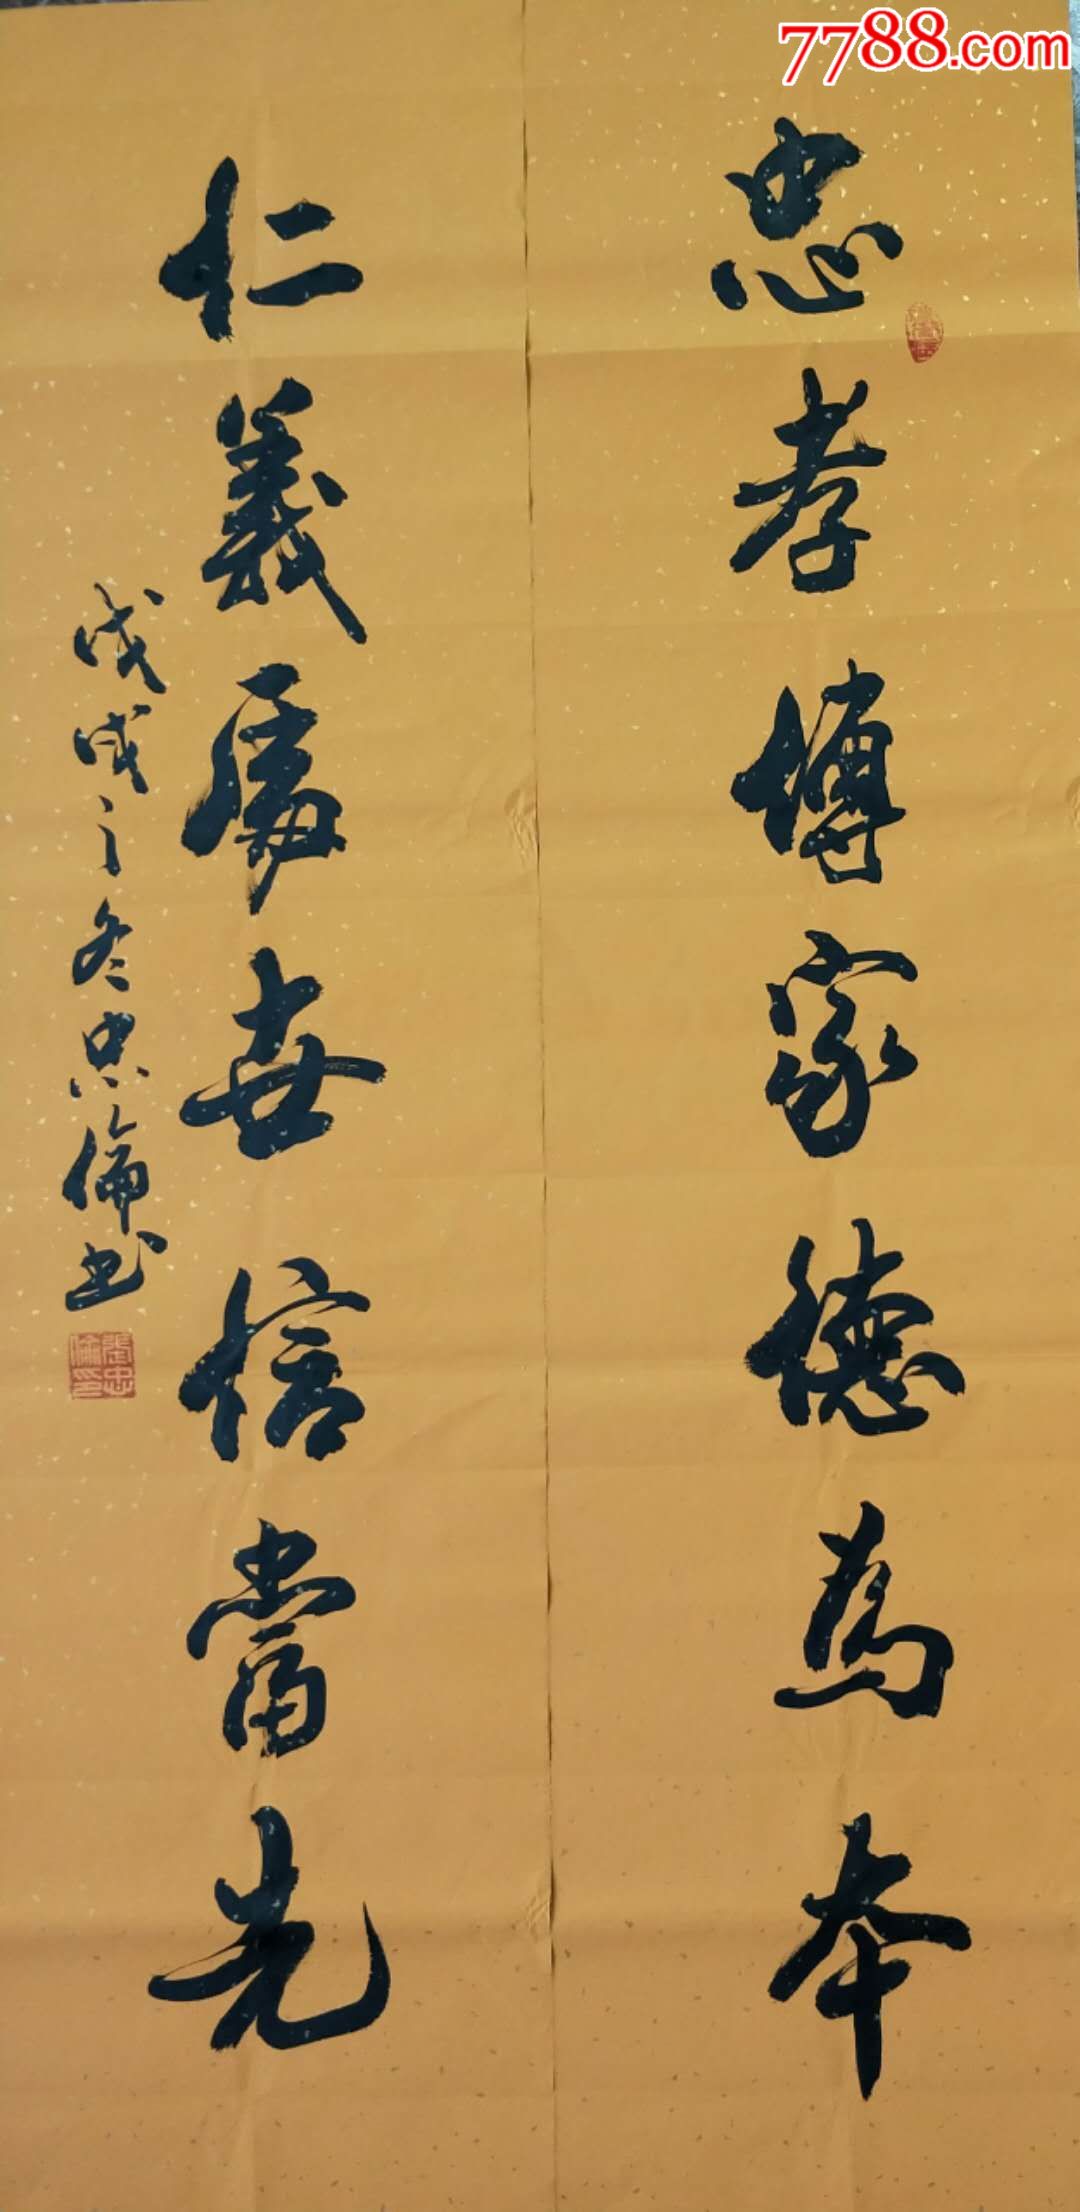 7788.com
忠孝傳家德為本
仁義處世信當先
戊戌之冬忠倫書
張忠倫印